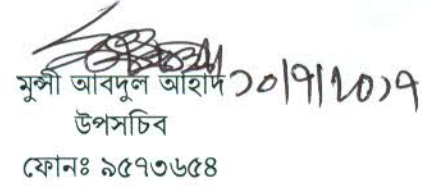 মুন্সী আবদুল আহাদ ১০/৭/২০১৭
উপসচিব
ফোনঃ ৯৫৭৩৬৫৪